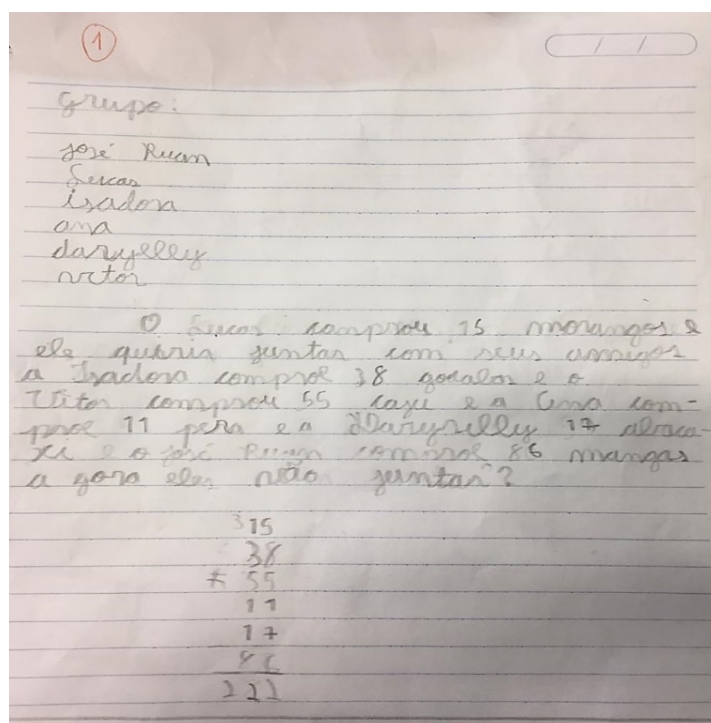 1
/ /
Grupo:
José Ruan
Lucas
isadora
ana
daryelly
victor
O Lucas comprou 15 morangos e
ele queria juntar com seus amigos
a Isadora comproe 38 goiabas e o
Vitor comprou 55 caju e a Ana com-
proe 11 pera e a Daryelly 17 abaca-
xi e o José Ruan comproe 86 mangas
a gora eles vão juntar?
3
15
38
+ 55
11
17
86
222